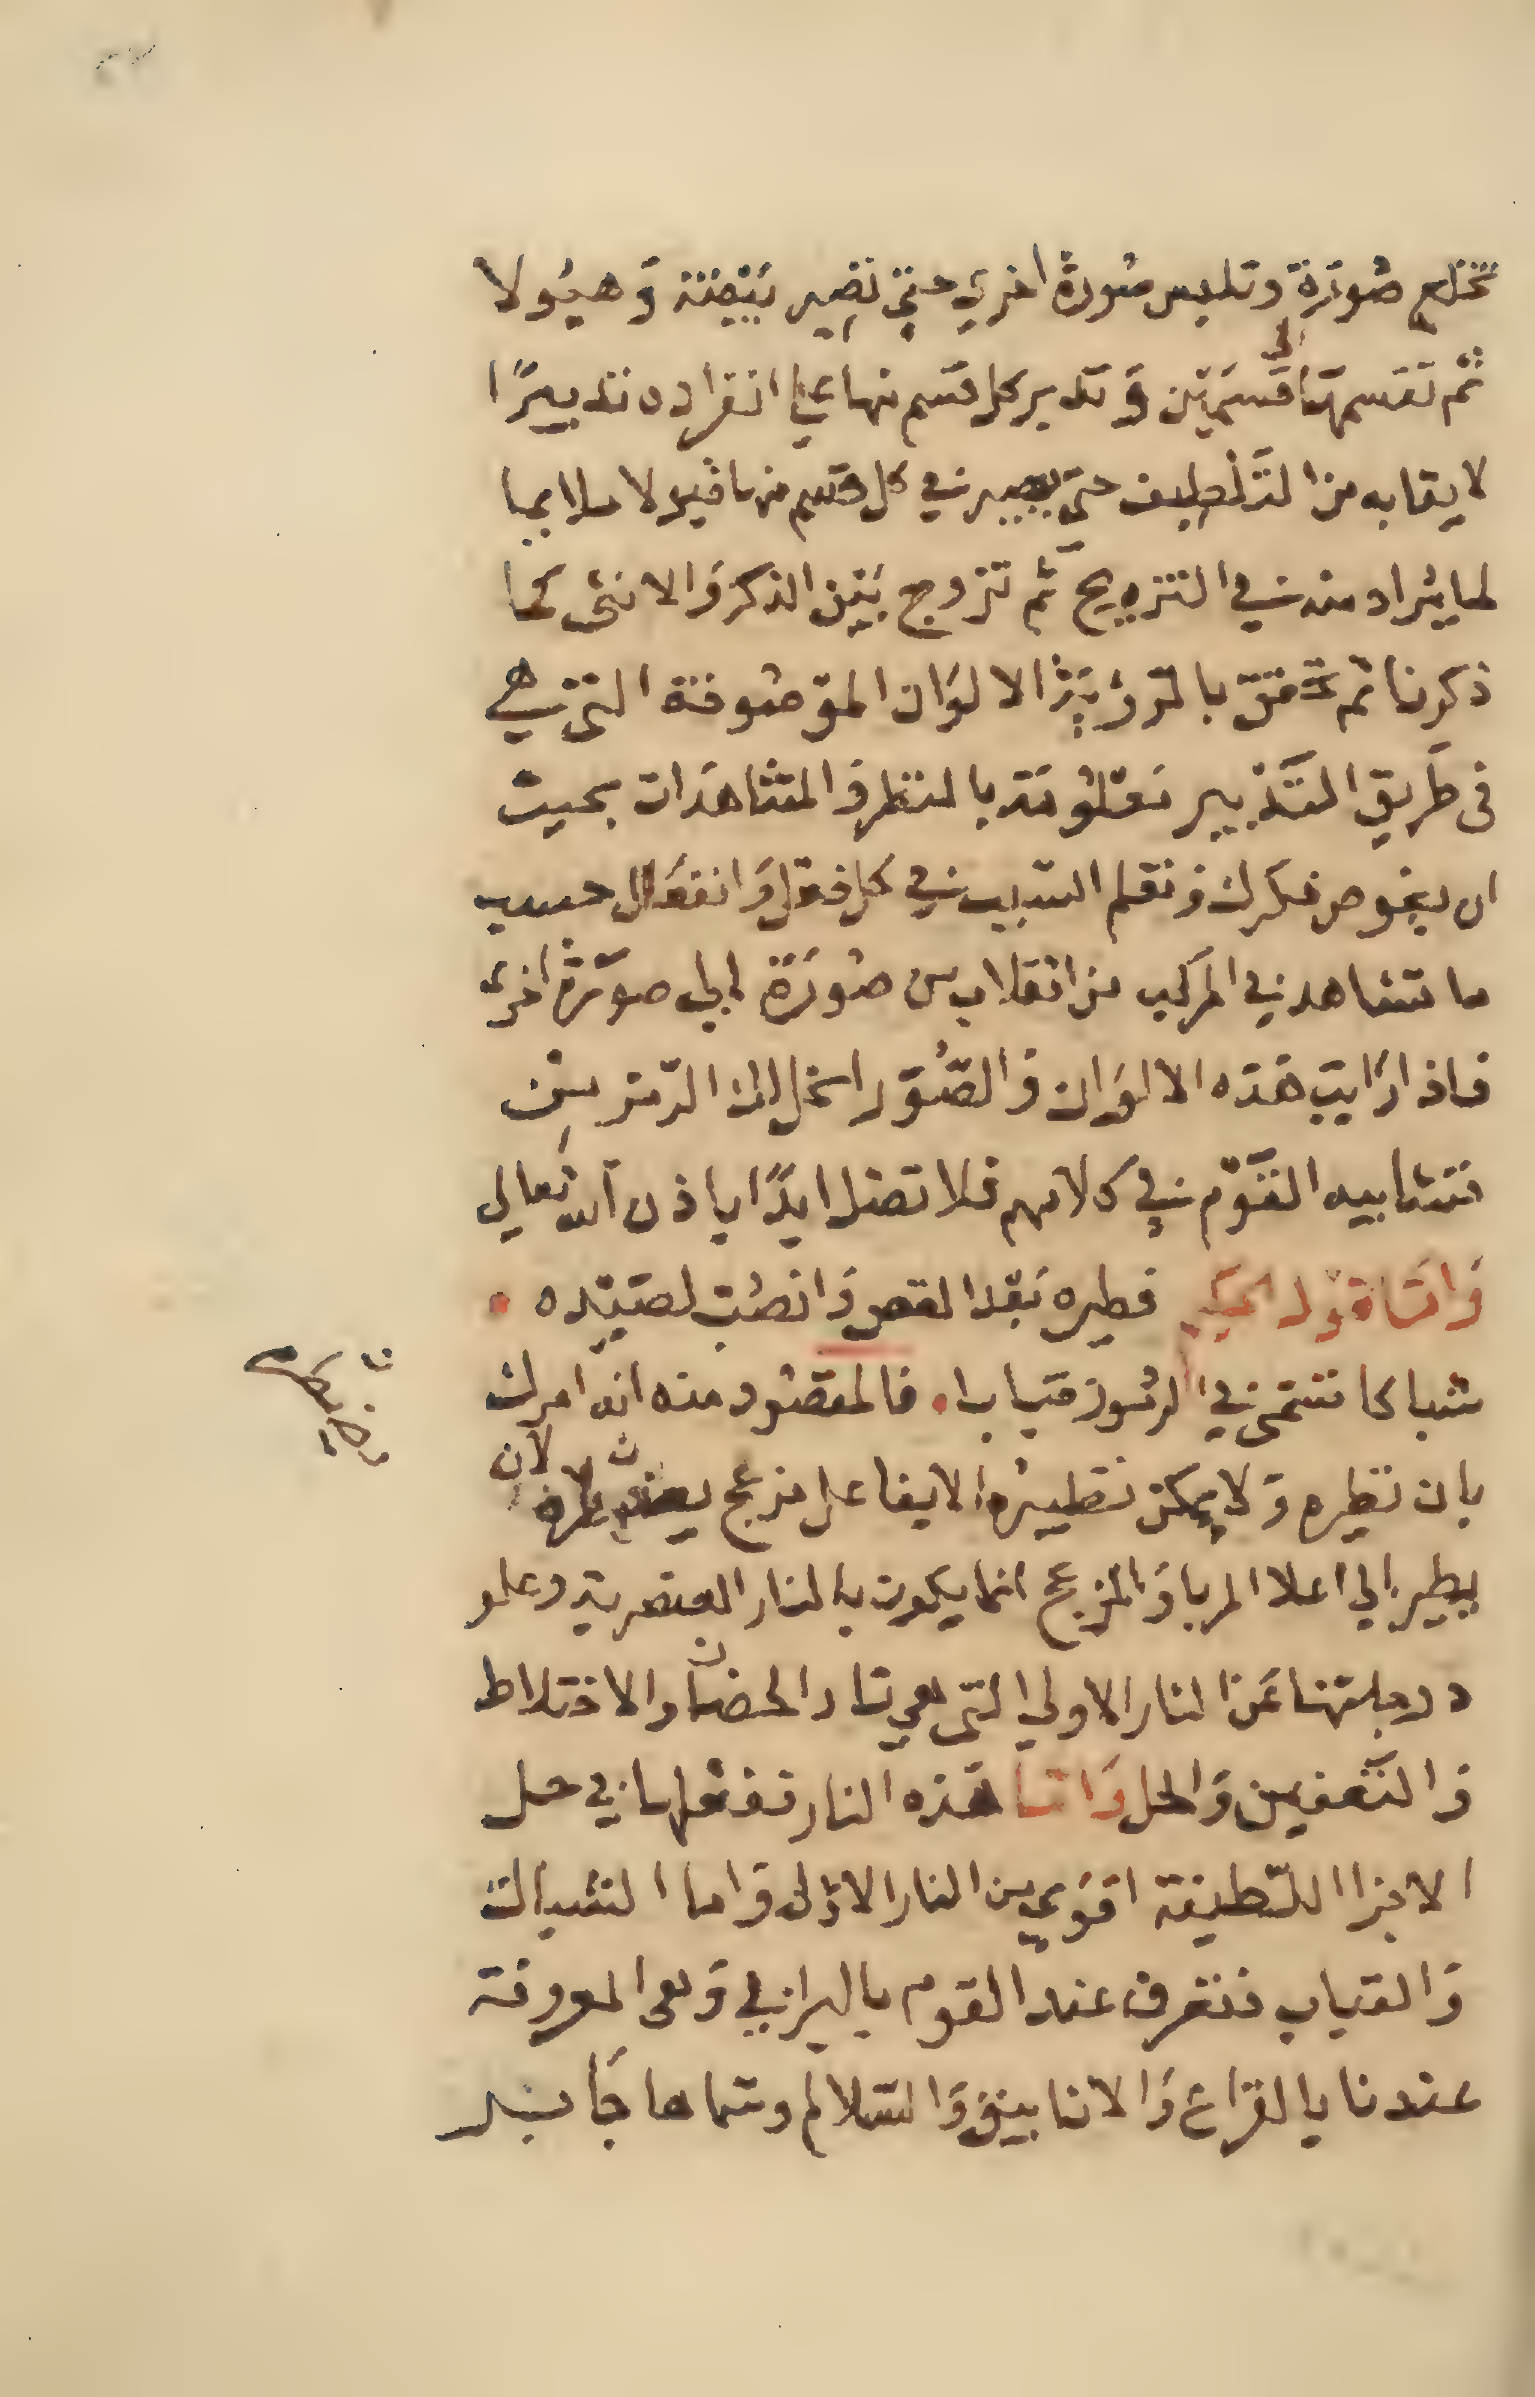 تخلع صُورَة وتلبس صُورة اخري حتي تصير بَيْضَة وَهيُولا
ثم تقسمهَا الى قسمَيْن وَتدبر كل قسم منها علي انفراده تدبيرًا
لايقا به من التَّلْطِيف حتى يصير في كل قسم منها قبولا ملايما
لما يُراد منه في التزويج ثم تزوج بَيْن الذكر وَالانثى كما
ذكرنا ثم تحقق بالرؤيَة الالوَان الموصُوفة التى هي
فى طَريق التَّدْبير مَعْلُومَة بالنظر وَالمشاهدَات بحيث
ان يغوص فكرك وَتعلم السَّبب في كل فعل وَانفعَال حسب
ما تشاهد في المركب من انقلاب من صُورَة الي صورَة اخرى
فاذا رَايت هَذه الالوَان وَالصُّوَر انحل لك الرّمز من
تشابيه القَوْم في كلامهم فلا تضل ابدًا باذن الله تعالي
وَامَّا قول الحكيم فطيره بَعْد القص وَانصُب لصَيْده
شباكا تسمى في الرمُوز قبابا فالمقصُود منه انه امرك
بان تطيره وَلا يمكن تطييرُه الا بفاعل مزعج لان
يطير الي اعلا المربا وَالمزعج انما يكون بالنار العنصرية وعلو
درجاتها عَن النار الاولي التي هي نار الحضان والاختلاط
وَالتَّعفين وَالحل وَامَّا هَذه النار ففعلها في حل
الاجزا اللَّطيفة اقوَي من النار الاوْلى وَاما الشباك
وَالقباب فتعرف عند القوم بالبرابي وَهى المعروفة
عندنا بالقرَاع وَالانابيق وَالسّلالم وتماما جَابر